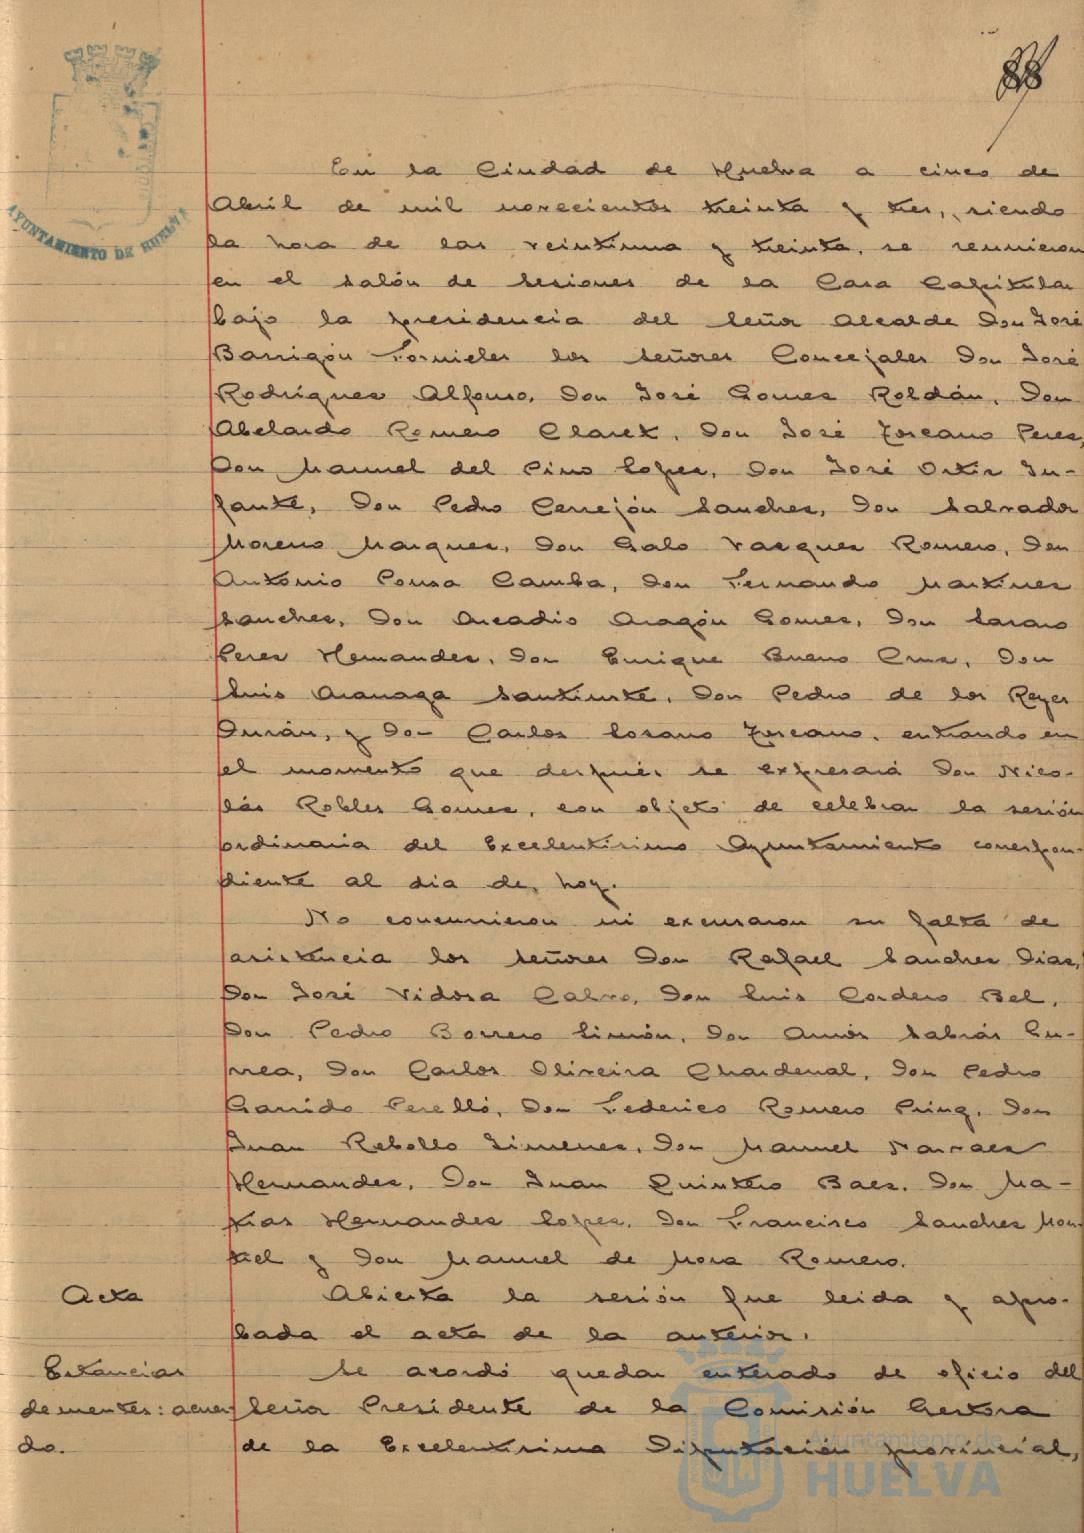 88
AYUNTAMIENTO DE HUELVA
En la Ciudad de Huelva a cinco de
Abril de mil novecientos treinta y tres, siendo
la hora de las veintiuna y treinta, se reunieron
en el salón de sesiones de la Casa Capitular
bajo la presidencia del señor Alcalde Don José
Barrigón Fornieles los señores Concejales Don José
Rodrigues Alfonso, Don José Gomes Roldán, Don
Abelardo Romero Claret, Don José Toscano Peres,
Don Manuel del Pino Lopes, Don José Ortiz In-
fante, Don Pedro Cerrejón Sanches, Don Salvador
Moreno Marques, Don Galo Vasques Romero, Don
Antonio Pousa Camba, Don Fernando Martines
Sanches, Don Arcadio Aragón Gomes, Don Lasaro
Peres Hernandes, Don Enrique Bueno Crus, Don
Luis Aranaga Santiuste, Don Pedro de los Reyes
Durán, y Don Carlos Losano Toscano, entrando en
el momento que después se expresará Don Nico-
lás Robles Gomes, con objeto de celebrar la sesión
ordinaria del Excelentisimo Ayuntamiento correspon-
diente al dia de hoy.
No concurrieron ni excusaron su falta de
asistencia los señores Don Rafael Sanches Dias,
Don José Vidosa Calvo, Don Luis Cordero Bel,
Don Pedro Borrero Limón, Don Amós Sabrás Gu-
rrea, Don Carlos Oliveira Chardenal, Don Pedro
Garrido Perelló, Don Federico Romero Pring, Don
Juan Rebollo Jimenes, Don Manuel Narvaes
Hernandes, Don Juan Quintero Baes, Don Ma-
tias Hernandes Lopes, Don Francisco Sanches Mon-
tiel y Don Manuel de Mora Romero.
Acta
Abierta la sesión fue leida y apro-
bada el acta de la anterior.
Estancias
dementes: acuer-
do.
Se acordó quedar enterado de oficio del
señor Presidente de la Comisión Gestora
de la Excelentisima Diputación provincial,
Ayuntamiento de
HUELVA